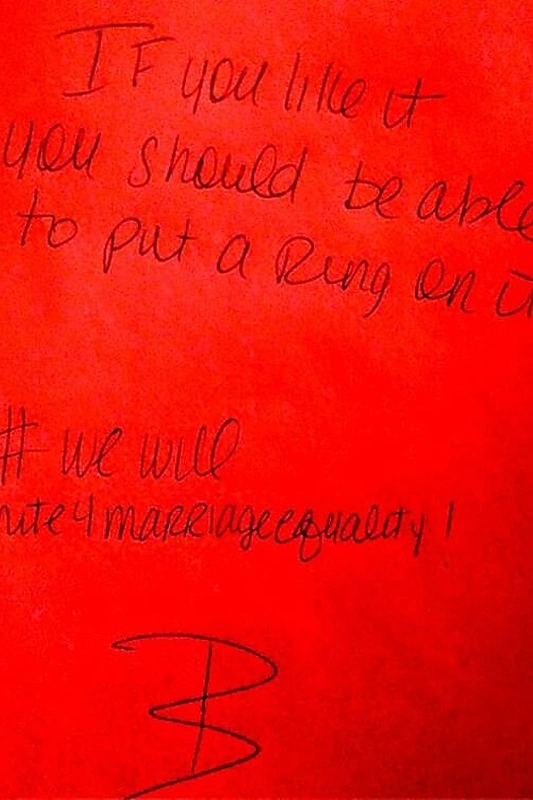 IF you like it
you should be able
to put a Ring on it
# we will
nite4marriageequality!
B